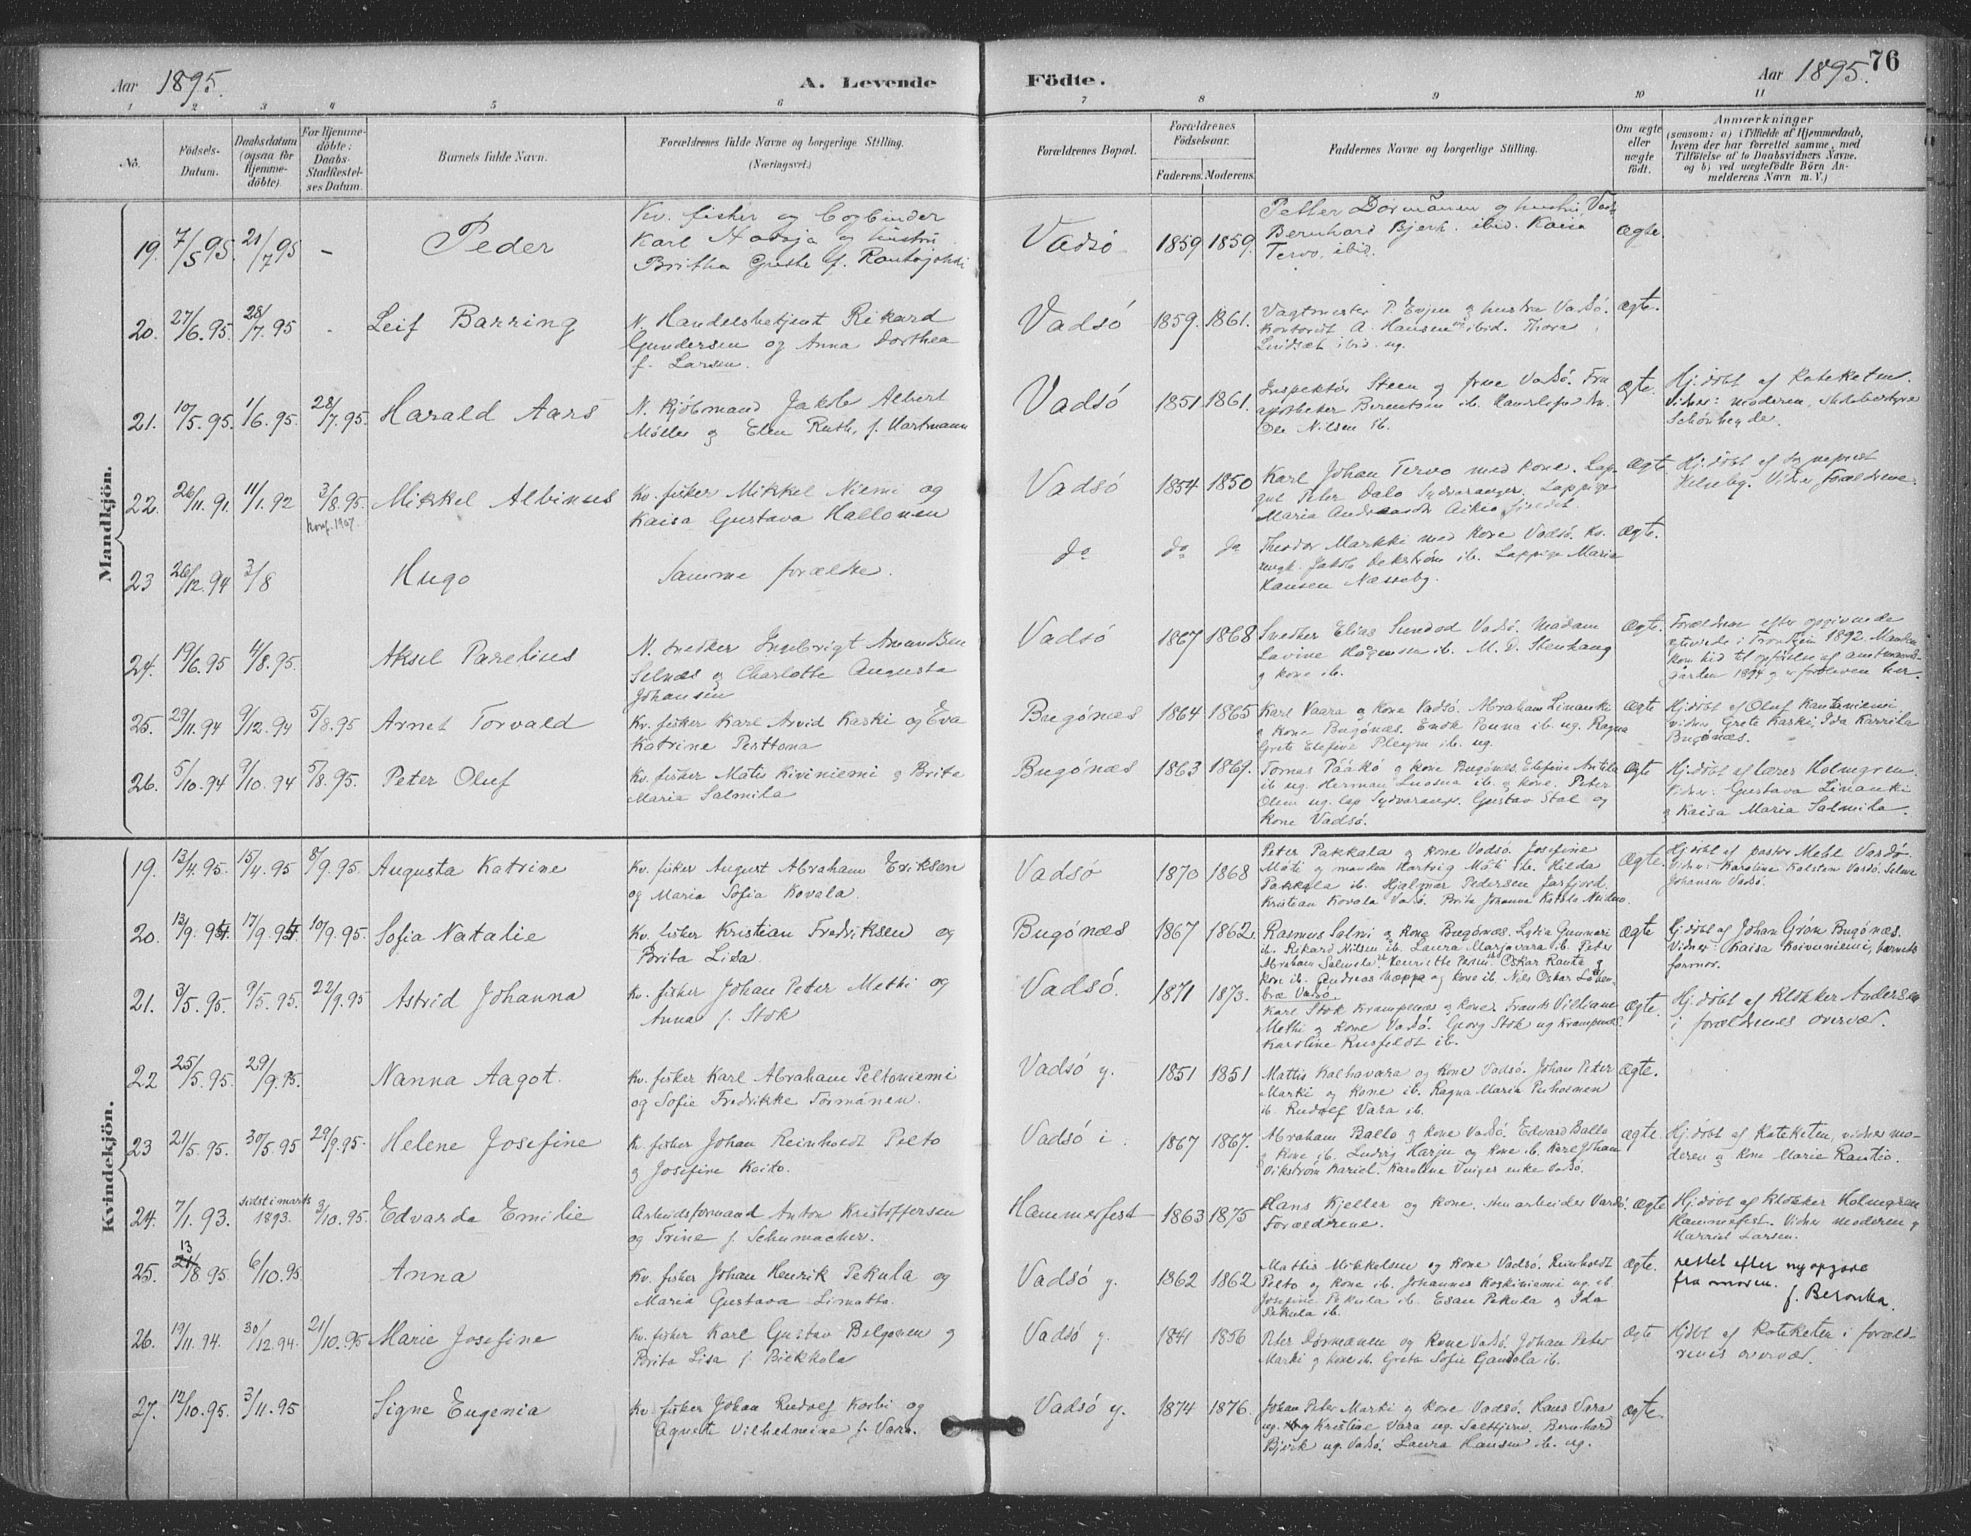 Aar 1895.
A. Levende Födte.
Aar 1895.
76
1 2 3 4 5 6 7 8 9 10 11
No.
Födsels-
Datum.
Daabsdatum
(ogsaa for
Hjemme-
döbte)
For Hjemme-
döbte:
Daabs-
Stadfæstel-
ses Datum.
Barnets fulde Navn.
Forældrenes fulde Navne og borgerlige Stilling.
(Næringsvei.)
Forældrenes Bopæl.
Forældrenes
Födselsaar.
Faderens. Moderens.
Faddernes Navne og borgerlige Stilling.
Om ægte
eller
uægte
födt.
Anmærkninger
(saasom: a) i Tilfælde af Hjemmedaab,
hvem der har forrettet samme, med
Tilföielse af to Daabsvidners Navne,
og b) ved uægtefödte Börn An-
melderens Navn m. V.)
Mandkjön.
19. 7/5 95. 21/7 95 – Peder
Kv. fisker og
Karl og hustru
Britha Grethe f.
Vadsö 1859 1859.
Petter Dormänen og hustru, Vads
Bernhard Bjerk. ibid. Kaisa
Tervo. ibid.
Ægte.
20. 27/6. 95. 28/7. 95 - Leif Barring
N. Handelsbetjent Rikard
Gundersen og Anna Dorthea
f. Larsen.
Vadsö 1859. 1861.
Vagtmester P. Evjen og hustru Vadsö.
Kontorist A. Hansen ibid. Thora
ibid. ug.
Ægte.
21. 10/5. 95. 1/6. 95. 28/7. 95. Harald Aars
N. Kjöbmand Jakob Albert
Möller og Elen Ruth, f. Hartmann
Vadsö 1851 1861.
Inspektör Steen og frue Vadsö. Fru
apotheker Berentsen ib.
Ole Nilsen ib.
Ægte.
Hj. döbt af Kateketen.
Vidner: moderen,
Schönheyde.
22. 26/11. 91. 11/1. 92 3/8. 95. Mikkel Albinus
Konf. 1907
Kv. fisker Mikkel Niemi og
Kaisa Gustava Hallonen
Vadsö 1854 1850
Karl Johan Tervo med kone. Lap-
gut Peter Dalo Sydvaranger. Lappige
Maria
Ægte
Hj. döbt af sogneprest
Vidner forældrene.
23 26/12. 94 3/8 Hugo
Samme forældre.
do do do
Theodor Markki med kone Vadsö. Kv.
ungk. Jakob ib. Lappige Maria
Hansen Næsseby.
Ægte.
24. 19/6. 95 4/8. 95. Aksel Parelius
N. snedker Ingebrigt Amundsen
Selnæs og Charlotte Augusta
Johansen
Vadsö 1867 1868
Snedker Elias Sundod Vadsö. Madam
Lavine Hågensen ib. M. D. Stenhaug
og kone ib.
Ægte.
Forældrene efter opgivende
gtviede i Trondhjem 1892. Manden
kom hid til opförelse af amtmands-
gården 1894 og er forbleven her.
25. 29/11. 94 9/12. 94 5/8. 95 Arnet Torvald
Kv. fisker Karl Arvid Kaski og Eva
Katrine Perttona
Bugönæs 1864 1865
Karl Vaara og kone Vadsö. Abraham Linanki
og kone Bugönæs. Enok Ponna ib. ug. Ragna
Grete Elefine Pleym ib. ug.
Ægte
Hj. döbt af Oluf Rantaniemi,
vidner Grete Kaski, Ida Karrila
Bugönæs.
26. 5/10. 94 9/10. 94 5/8. 95. Peter Oluf
Kv. fisker Matis Kiviniemi og Brita
Maria Salmila
Bugönæs 1863 1869.
Tomas Pääkö og kone Bugönæs. Elefine Antila
ib ug. Herman ib. og kone. Peter
Olsen ug. lap Sydvaranger. Gustav Stal og
kone Vadsö.
Ægte
Hj. döbt af lærer Holmgren.
Vidner: Gustava Linanki
og Kaisa Maria Salmila.
Kvindekjön.
19. 13/4. 95. 15/4. 95 8/9. 95. Augusta Katrine
Kv. fisker August Abraham Eriksen
og Maria Sofia Kovala.
Vadsö 1870 1868
Peter Pakkala og kone Vadsö. Josefine
Mäti og manden Hartvig Mäti ib. Hilda
Pakkala ib. Hjalmar Pedersen Jarfjord
Kristian Kovala Vadsö. Brita Johanna Neiden
Ægte.
Hj. döbt af pastor Mebl Vardö.
Vidner: Karoline Kolstem Vardö. Selma
Johansen Vadsö.
20. 13/9. 94 17/9. 94 10/9. 95. Sofia Natalie
Kv. fisker Kristian Fredriksen og
Brita Lisa.
Bugönæs 1867 1862.
Rasmus Salmi og kone Bugönæs. Lydia Gunnari
ib. Rikard Nilsen ib. Laura Marjavara ib. Peter
Abraham Salmela ib. Henriette Oskar Ranta og
kone ib. Andreas Næppa og kone ib. Nils Oskar
Vadsö
Ægte
Hj. döbt af Johan Grön Bugönæs.
Vidner: Kaisa Koivuniemi, barnets
farmor.
21. 3/5. 95. 9/5. 95. 22/9. 95 Astrid Johanna
Kv. fisker Johan Peter Methi og
Anna f. Stok
Vadsö. 1871 1873.
Karl Stok Krampenes og kone. Frants Vilhelm
Methi og kone Vadsö. Georg Stok ug Krampenes.
Karoline Rusfeldt ib.
Ægte.
Hj. döbt af klokker Andersen
i forældrenes overvær.
22 25/5. 95. 29/9. 95. Nanna Aagot.
Kv. fisker Karl Abraham Peltoniemi
og Sofie Fredrikke Tormänen.
Vadsö y. 1851 1851
Mattis Kalhavara og kone Vadsö. Johan Peter
Marki og kone ib. Ragna Maria Perhonen
ib. Rudolf Vara ib.
Ægte.
23 21/5. 95. 30/5. 95 29/9. 95. Helene Josefine
K. fisker Johan Reinholdt Pelto
og Josefine Keito.
Vadsö i. 1867 1867.
Abraham Ballo og kone Vadsö. Edvard Ballo
og kone ib. Ludvig Harju og kone ib. Karl Johan
Vikström Kariel. Karoline Uniger enke Vadsö.
Ægte.
Hj. döbt af Kateketen, vidner mo-
deren og kone Marie Rantio.
24. 7/1. 93. sidst i marts 1893. 3/10. 95. Edvarda Emilie
Arbeidsformand Anton Kristoffersen
og Trine f. Schumacher.
Hammerfest 1863 1875
Hans Kjeller og kone, stenarbeider Vardö.
Forældrene.
Ægte
Hj. döbt af klokker Holmgren
Hammerfest. Vidner moderen og
Harriet Larsen.
25. 13/8. 95. 6/10. 95 Anna
Kv. fisker Johan Henrik Pekula og
Maria Gustava Limatta.
Vadsö y. 1862 1862
Mathis Mikkelsen og kone Vadsö. Reinholdt
Pelto og kone ib. Johannes Koskiniemi ug. ib.
Josefine Pekula ib. Esan Pekula og Ida
Pekula ib.
Ægte.
rettet efter ny opgave
fra moren.
f. Beronka.
26. 19/11. 94. 30/12. 94. 21/10. 95 Marie Josefine
Kv. fisker Karl Gustav Belgonen og
Brita Lisa f. Biekkola
Vadsö y. 1841 1856
Peter Dormänen og kone Vadsö. Johan Peter
Marki og kone ib. Greta Sofie Gandola ib.
Ægte
Hjdöbt af Kateketen i foræld-
renes overvær.
27. 12/10. 95. 3/11. 95 Signe Eugenia
Kv fisker Johan Rudolf Korbi og
Agnete Vilhelmine f. Vara.
Vadsö y. 1874 1876.
Johan Peter Marki og kone Vadsö. Hans Vara
ug. og Kristine Vara ug. Salttjern. Bernhard
Bjerk ug. Vadsö. Laura Hansen ib. ug.
Ægte.